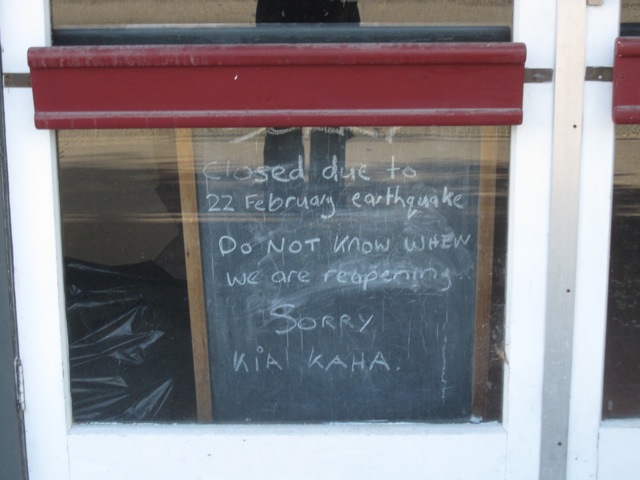 Closed due to
22 February earthquake
Do NOT KNOW WHEN
we are reopening.
SORRY
KiA KAHA.